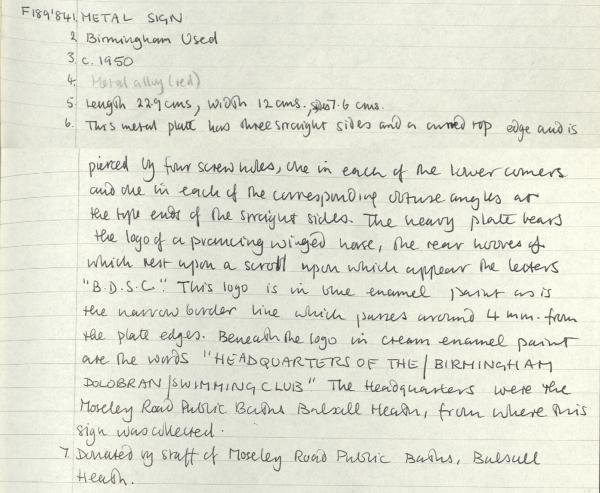 F189'84 1. METAL SIGN
2. Birmingham Used
3. c. 1950
4. Metal alloy (red)
5. Length 22.9 cms, width 12 cms., 7.6 cms.
6. This metal plate has three straight sides and a curved top edge and is
pierced by four screw holes, one in each of the lower corners
and one in each of the corresponding obtuse angles at
the top ends of the straight sides. The heavy plate bears
the logo of a prancing winged horse, the rear hooves of
which rest upon a scroll upon which appear the letters
"B.D.S.C." This logo is in blue enamel paint as is
the narrow border line which passes around 4 mm. from
the plate edges. Beneath the logo in cream enamel paint
are the words "HEADQUARTERS OF THE / BIRMINGHAM
DOLOBRAN / SWIMMING CLUB" The Headquarters were the
Moseley Road Public Baths Balsall Heath, from where this
sign was collected.
7. Donated by staff of Moseley Road Public Baths, Balsall
Heath.